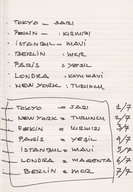 TOKYO – SARI
PEKİN – KIRMIZI
İSTANBUL – MAVİ
BERLİN – MOR
PARİS – YEŞİL
LONDRA –
NEW YORK – TURUNCU
TOKYO – SARI 1/7
NEW YORK – TURUNCU 2/7
PEKİN – KIRMIZI 3/7
PARİS – YEŞİL 4/7
İSTANBUL – MAVİ 5/7
LONDRA – MAGENTA 6/7
BERLİN – MOR 7/7